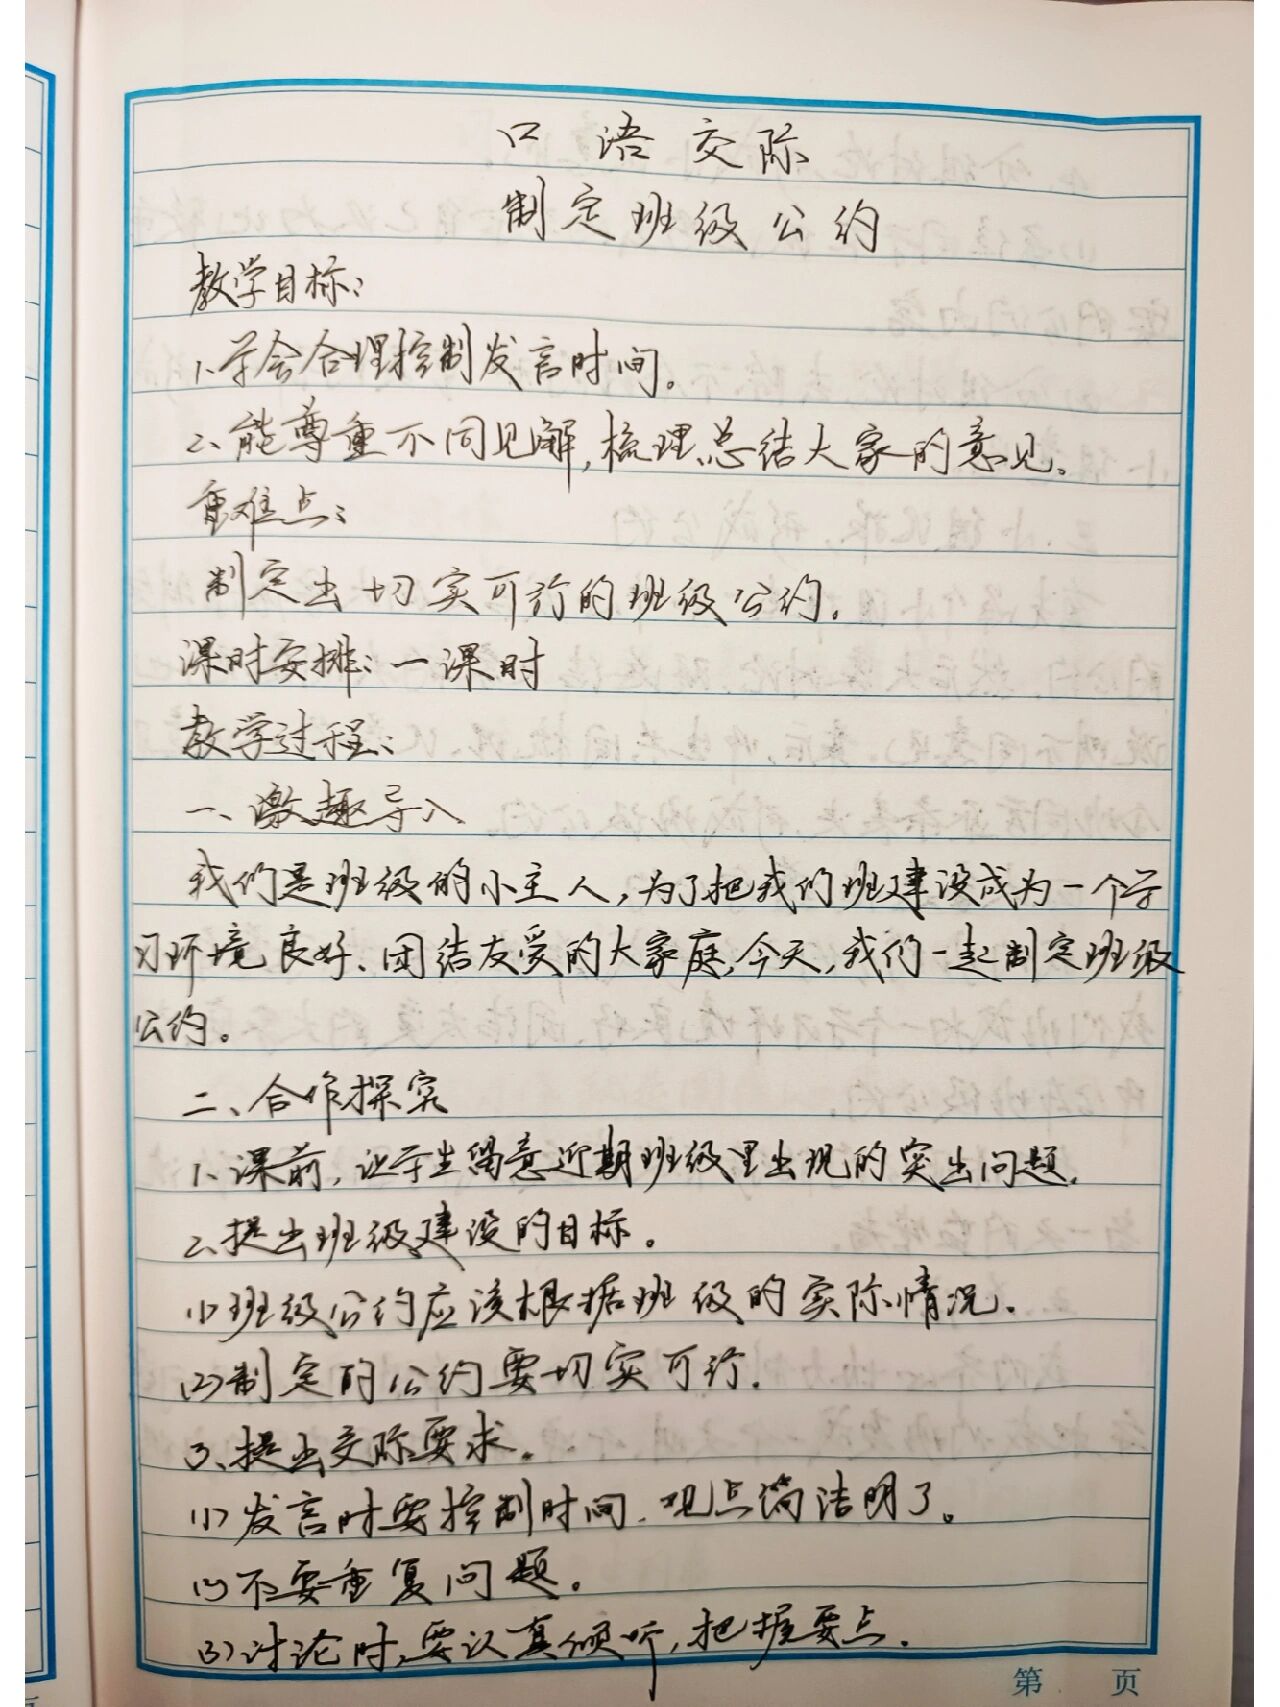 口语交际
制定班级公约
教学目标：
1、学会合理控制发言时间。
2、能尊重不同见解，梳理总结大家的意见。
重难点：
制定出切实可行的班级公约。
课时安排：一课时
教学过程：
一、激趣导入
我们是班级的小主人，为了把我们班建设成为一个学
习环境良好、团结友爱的大家庭，今天，我们一起制定班级
公约。
二、合作探究
1、课前，让学生留意近期班级里出现的突出问题。
2、提出班级建设的目标。
(1)班级公约应该根据班级的实际情况。
(2)制定的公约要切实可行。
3、提出交际要求。
(1)发言时要控制时间，观点简洁明了。
(2)不要重复问题。
(3)讨论时，要认真倾听，把握要点。
第 页